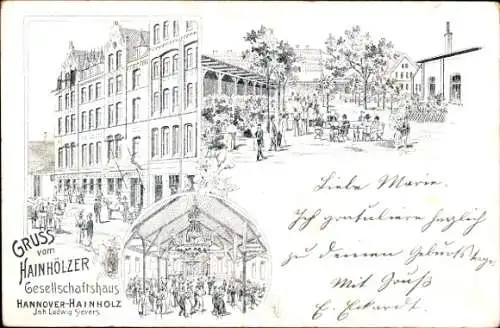 GRUSS
vom
HAINHÖLZER
Gesellschaftshaus
HANNOVER-HAINHOLZ
Joh. Ludwig Sievers.
Liebe Marie.
Ich gratuliere herzlich
zu deinem Geburtstage.
Mit Gruß
E. Eckardt.